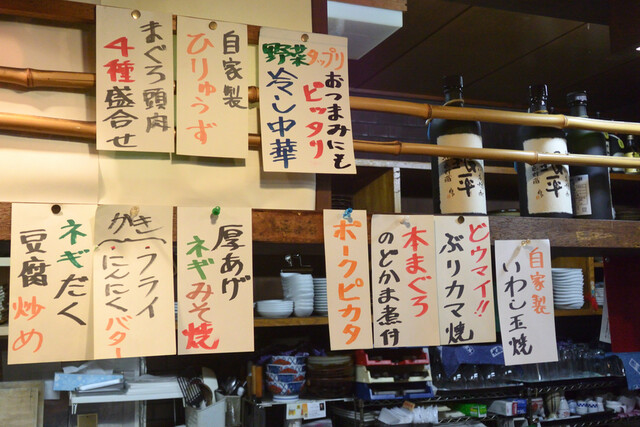 野菜タップリ
おつまみにも
ピッタリ
冷し中華
自家製
ひりゅうず
まぐろ頭肉
4種盛合せ
自家製
いわし玉焼
どウマイ!!
ぶりカマ焼
本まぐろ
のどかま煮付
ポークピカタ
厚あげ
ネギみそ焼
かき
フライ
にんにくバター
ネギだく
豆腐炒め